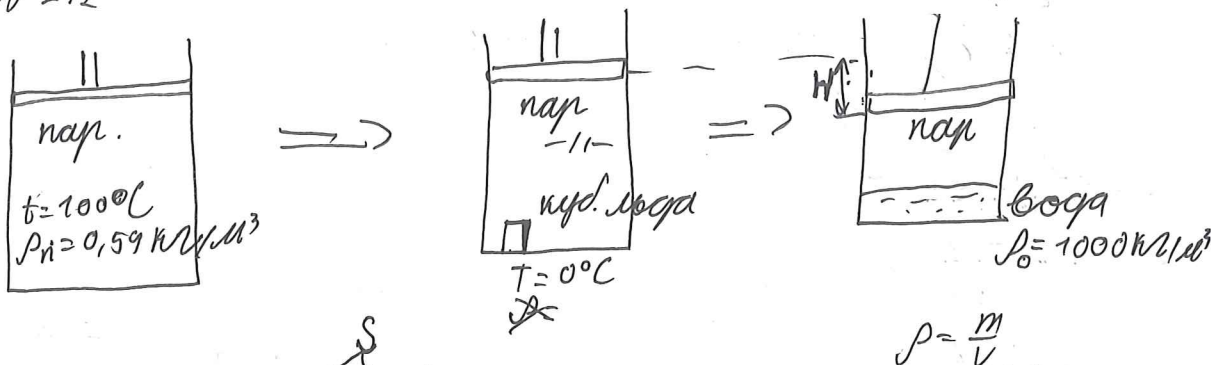 пар.
t=100°C
ρп=0,59 кг/м³
=>
пар
-//-
куб. льда
T=0°C
=>
H
пар
вода
ρ₀=1000 кг/м³
S
ρ=m/V